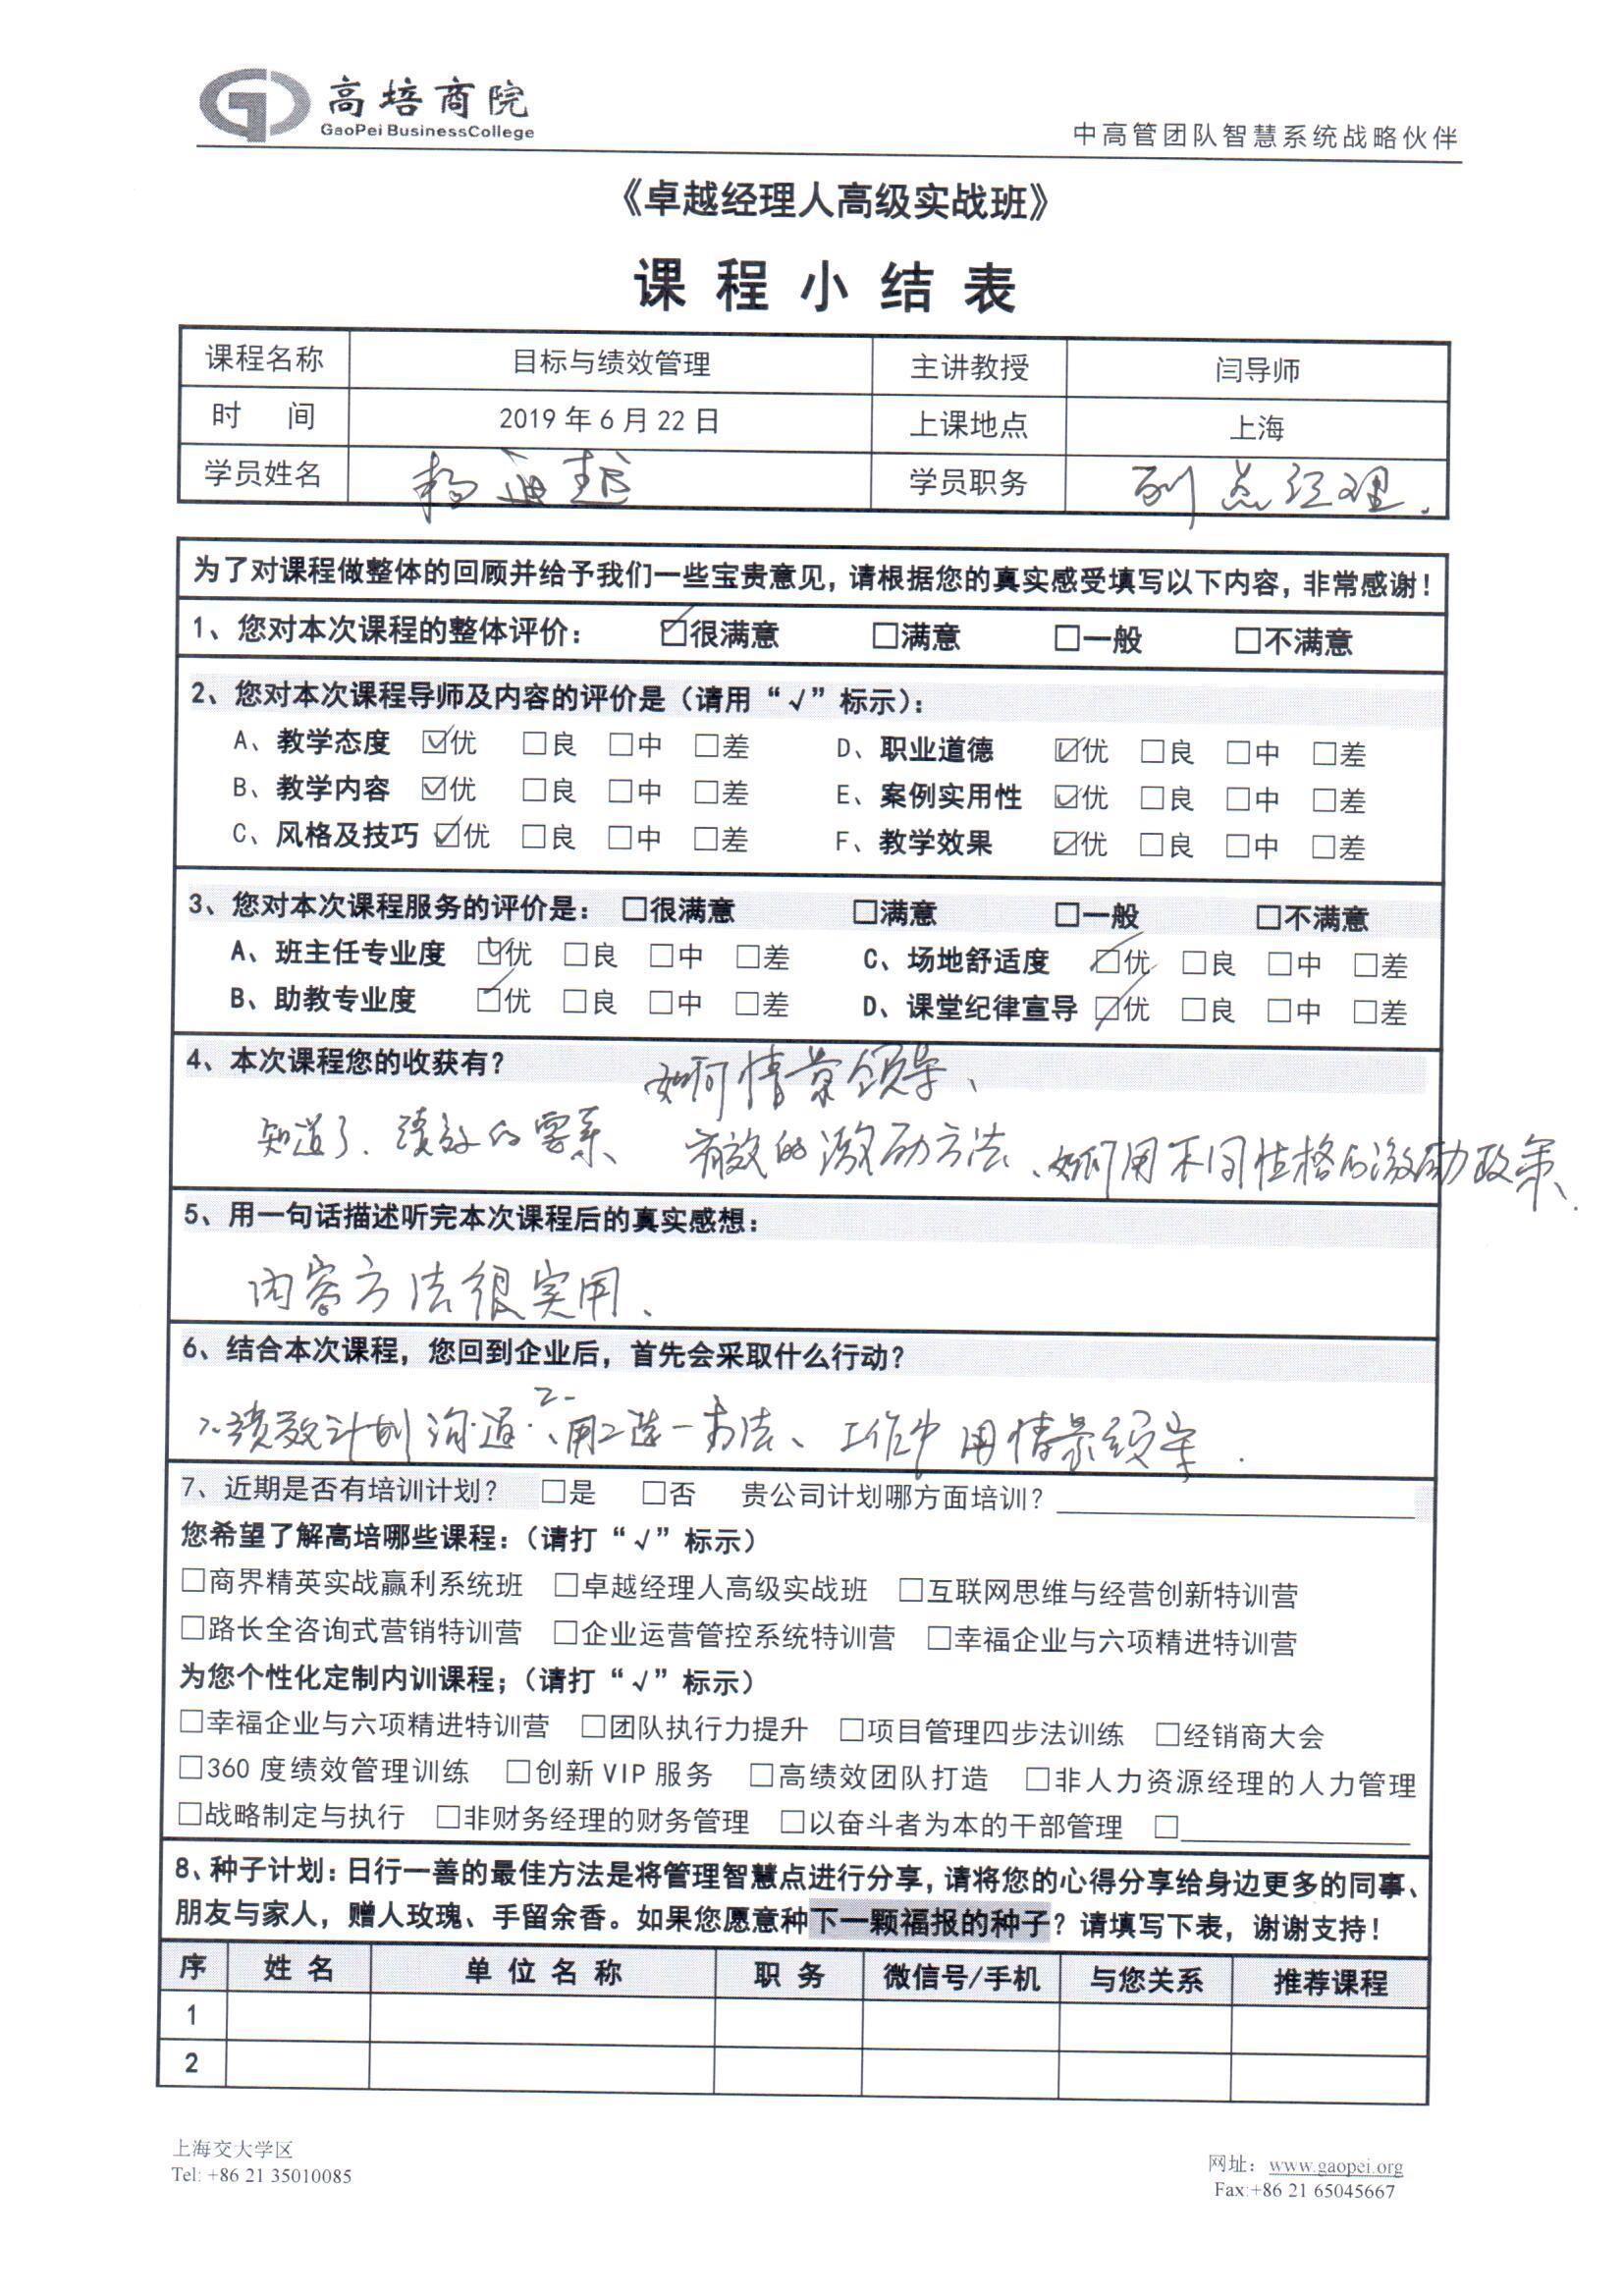 高培商院
GaoPei BusinessCollege
中高管团队智慧系统战略伙伴
《卓越经理人高级实战班》
课 程 小 结 表
课程名称 目标与绩效管理 主讲教授 闫导师
时 间 2019 年 6 月 22 日 上课地点 上海
学员姓名 杨 学员职务 副总经理.
为了对课程做整体的回顾并给予我们一些宝贵意见，请根据您的真实感受填写以下内容，非常感谢！
1、您对本次课程的整体评价： ☑很满意 □满意 □一般 □不满意
2、您对本次课程导师及内容的评价是（请用“√”标示）：
A、教学态度 ☑优 □良 □中 □差 D、职业道德 ☑优 □良 □中 □差
B、教学内容 ☑优 □良 □中 □差 E、案例实用性 ☑优 □良 □中 □差
C、风格及技巧 ☑优 □良 □中 □差 F、教学效果 ☑优 □良 □中 □差
3、您对本次课程服务的评价是： □很满意 □满意 □一般 □不满意
A、班主任专业度 ☑优 □良 □中 □差 C、场地舒适度 ☑优 □良 □中 □差
B、助教专业度 ☑优 □良 □中 □差 D、课堂纪律宣导 ☑优 □良 □中 □差
4、本次课程您的收获有？ 如何情景领导、
知道了、绩效的要素、有效的激励方法、如何用不同性格的激励政策、.
5、用一句话描述听完本次课程后的真实感想：
内容方法很实用、
6、结合本次课程，您回到企业后，首先会采取什么行动？
绩效计划沟通、用二选一方法、工作中用情景领导.
7、近期是否有培训计划？ □是 □否 贵公司计划哪方面培训？
您希望了解高培哪些课程：（请打“√”标示）
□商界精英实战赢利系统班 □卓越经理人高级实战班 □互联网思维与经营创新特训营
□路长全咨询式营销特训营 □企业运营管控系统特训营 □幸福企业与六项精进特训营
为您个性化定制内训课程；（请打“√”标示）
□幸福企业与六项精进特训营 □团队执行力提升 □项目管理四步法训练 □经销商大会
□360 度绩效管理训练 □创新 VIP 服务 □高绩效团队打造 □非人力资源经理的人力管理
□战略制定与执行 □非财务经理的财务管理 □以奋斗者为本的干部管理 □
8、种子计划：日行一善的最佳方法是将管理智慧点进行分享，请将您的心得分享给身边更多的同事、
朋友与家人，赠人玫瑰、手留余香。如果您愿意种下一颗福报的种子？请填写下表，谢谢支持！
序 姓 名 单 位 名 称 职 务 微信号/手机 与您关系 推荐课程
1
2
上海交大学区
Tel: +86 21 35010085
网址：www.gaopei.org
Fax:+86 21 65045667